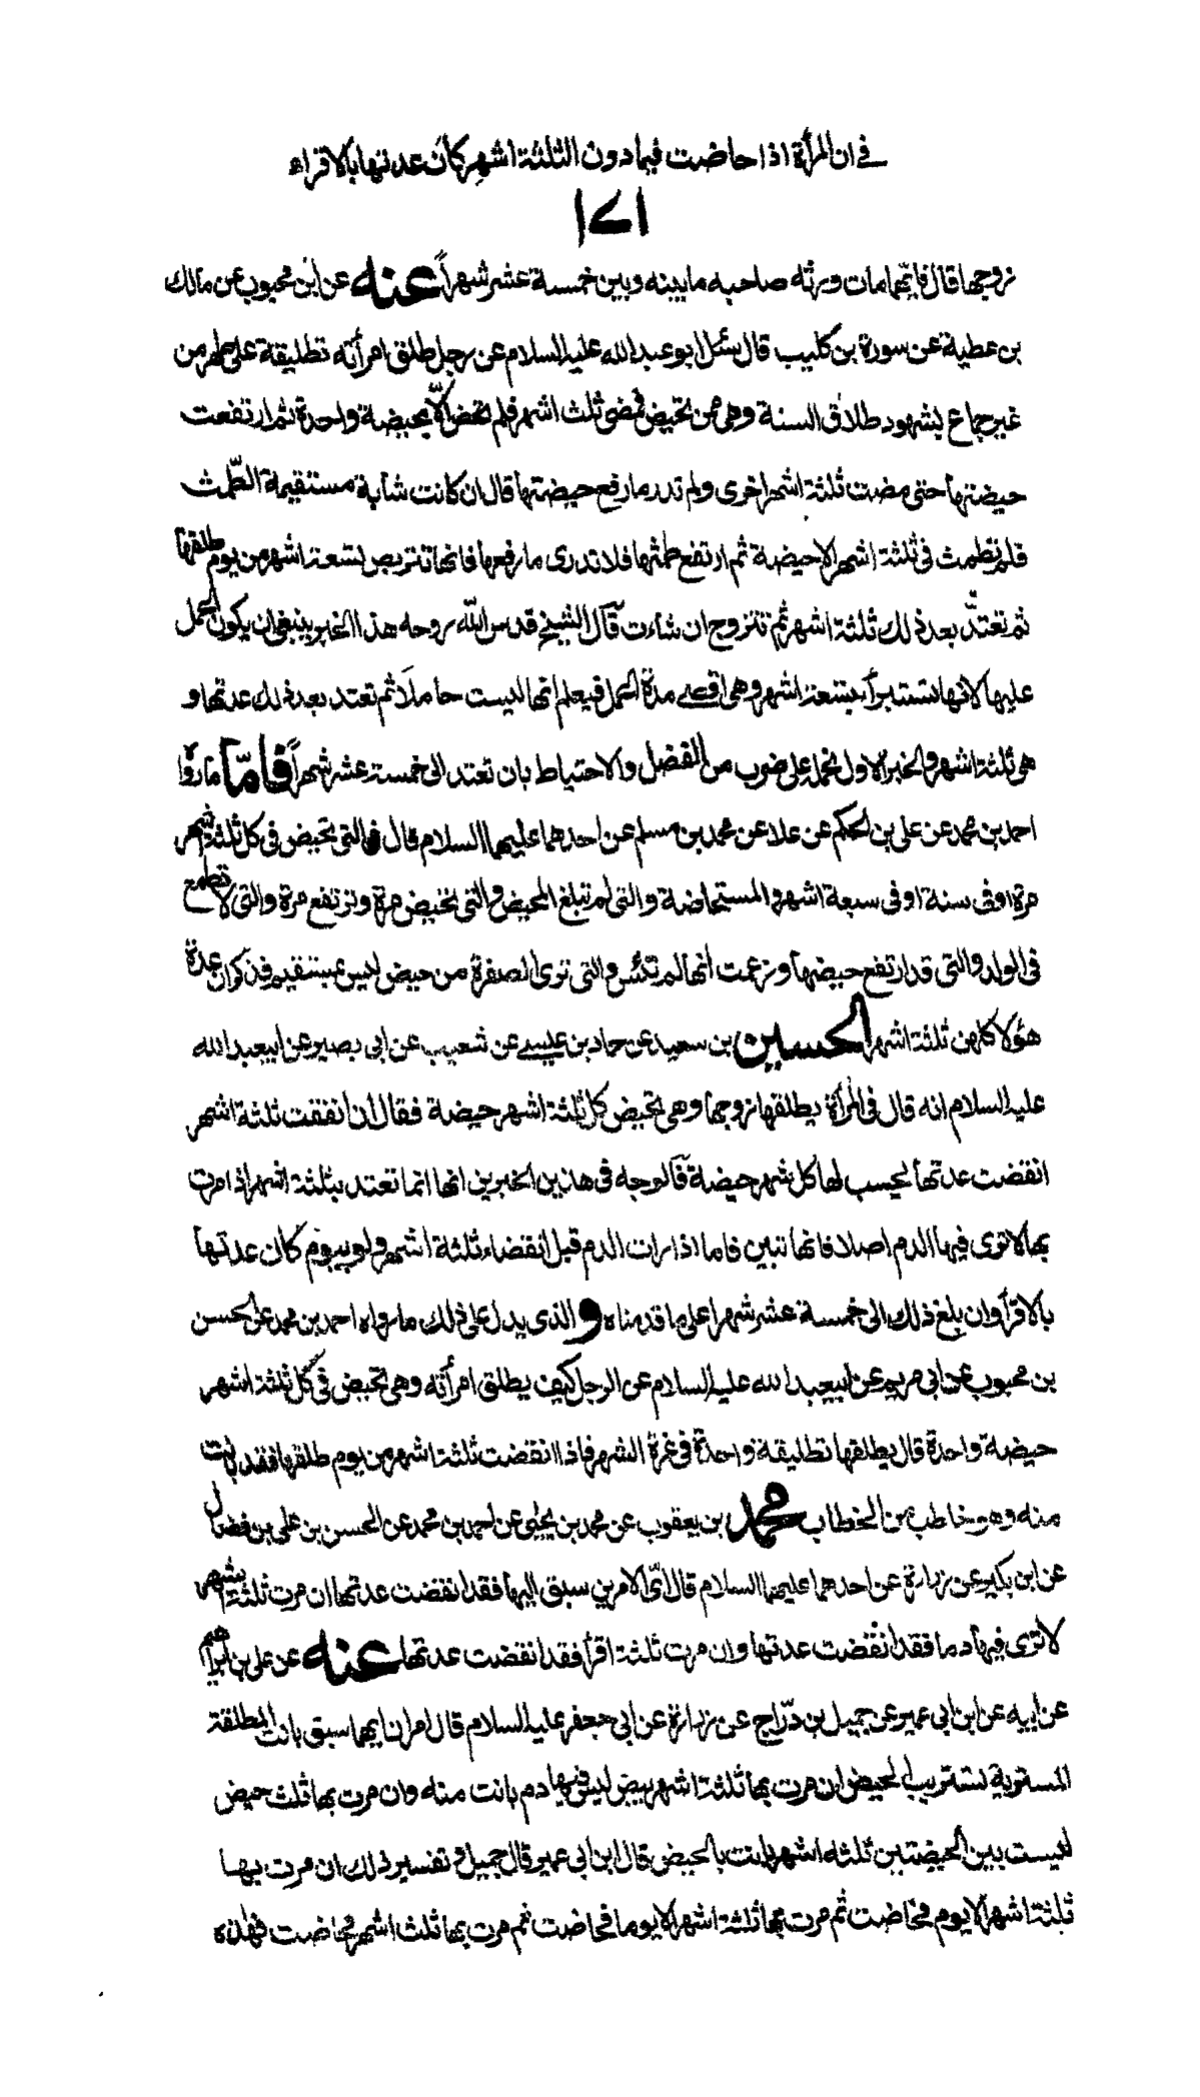 في ان المرأة اذا حاضت فيما دون الثلثة اشهر كان عدتها بالاقراء
١٧١
زوجها قال فايهما مات ورثه صاحبه ما بينه وبين خمسة عشر شهراً عنه عن ابن محبوب عن مالك
بن عطية عن سورة بن كليب قال سئل ابو عبد الله عليه السلام عن رجل طلق امرأته تطليقة على طهر من
غير جماع بشهود طلاق السنة وهى ممن تحيض فمضى ثلث اشهر فلم تحض الّا بحيضة واحدة ثم ارتفعت
حيضتها حتى مضت ثلثة اشهر اخرى ولم تدر ما رفع حيضتها قال ان كانت شابة مستقيمة الطّمث
فلم تطمث فى ثلثة اشهر الا حيضة ثم ارتفع طمثها فلا تدرى ما رفعها فانها تتربص تسعة اشهر من يوم طلقها
ثم تعتدّ بعد ذلك ثلثة اشهر ثم تتزوج ان شاءت قال الشيخ قدس اللّه روحه هذا الخبر ينبغى ان يكون العمل
عليها لانها تستبرأ بتسعة اشهر وهى اقصى مدة الحمل فيعلم انها ليست حاملا ثم تعتد بعد ذلك عدتها و
هى ثلثة اشهر والخبر الاول نحمله على ضرب من الفضل والاحتياط بان تعتد الى خمسة عشر شهراً فامّا ما رواه
احمد بن محمد عن على بن الحكم عن علا عن محمد بن مسلم عن احدهما عليهما السلام قال فى التى تحيض فى كل ثلثة اشهر
مرة او فى سنة او فى سبعة اشهر والمستحاضة والتى لم تبلغ المحيض والتى تحيض مرة وترتفع مرة والتى لا تطمع
فى الولد والتى قد ارتفع حيضها وزعمت انها لم تيئس والتى ترى الصفرة من حيض ليس بمستقيم فذكر ان عدة
هؤلا كلهن ثلثة اشهر الحسين بن سعيد عن حماد بن عيسى عن شعيب عن ابى بصير عن ابيعبد الله
عليه السلام انه قال فى المرأة يطلقها زوجها وهى تحيض كل ثلثة اشهر حيضة فقال ان انقضت ثلثة اشهر
انقضت عدتها يحسب لها كل شهر حيضة فالوجه فى هذين الخبرين انها انما تعتد بثلثة اشهر اذا مرت
بها لا ترى فيها الدم اصلا فانها تبين فاما اذا رات الدم قبل انقضاء ثلثة اشهر ولو بيوم كان عدتها
بالاقرآ وان بلغ ذلك الى خمسة عشر شهرا على ما قدمناه والذى يدل على ذلك ما رواه احمد بن محمد عن الحسن
بن محبوب عن ابى مريم عن ابيعبد الله عليه السلام عن الرجل كيف يطلق امرأته وهى تحيض فى كل ثلثة اشهر
حيضة واحدة قال يطلقها تطليقة واحدة فى غرة الشهر فاذا انقضت ثلثة اشهر من يوم طلقها فقد بانت
منه وهو خاطب من الخطاب محمد بن يعقوب عن محمد بن يحيى عن احمد بن محمد عن الحسن بن على بن فضال
عن ابن بكير عن زرارة عن احدهما عليهما السلام قال اىّ الامرين سبق اليها فقد انقضت عدتها ان مرت ثلثة اشهر
لا ترى فيها دما فقد انقضت عدتها وان مرت ثلثة اقرأ فقد انقضت عدتها عنه عن على بن ابراهيم
عن ابيه عن ابن ابى عمير عن جميل بن درّاج عن زرارة عن ابى جعفر عليه السلام قال امران ايهما سبق بانت المطلقة
المسترية تستريب الحيض ان مرت بها ثلثة اشهر بيض ليس فيها دم بانت منه وان مرت بها ثلث حيض
ليست بين الحيضتين ثلثه اشهر بانت بالحيض قال ابن ابى عمير قال جميل وتفسير ذلك ان مرت بها
ثلثة اشهر الا يوم فحاضت ثم مرت بها ثلثة اشهر الا يوما فحاضت ثم مرت بها ثلث اشهر فحاضت فهذه